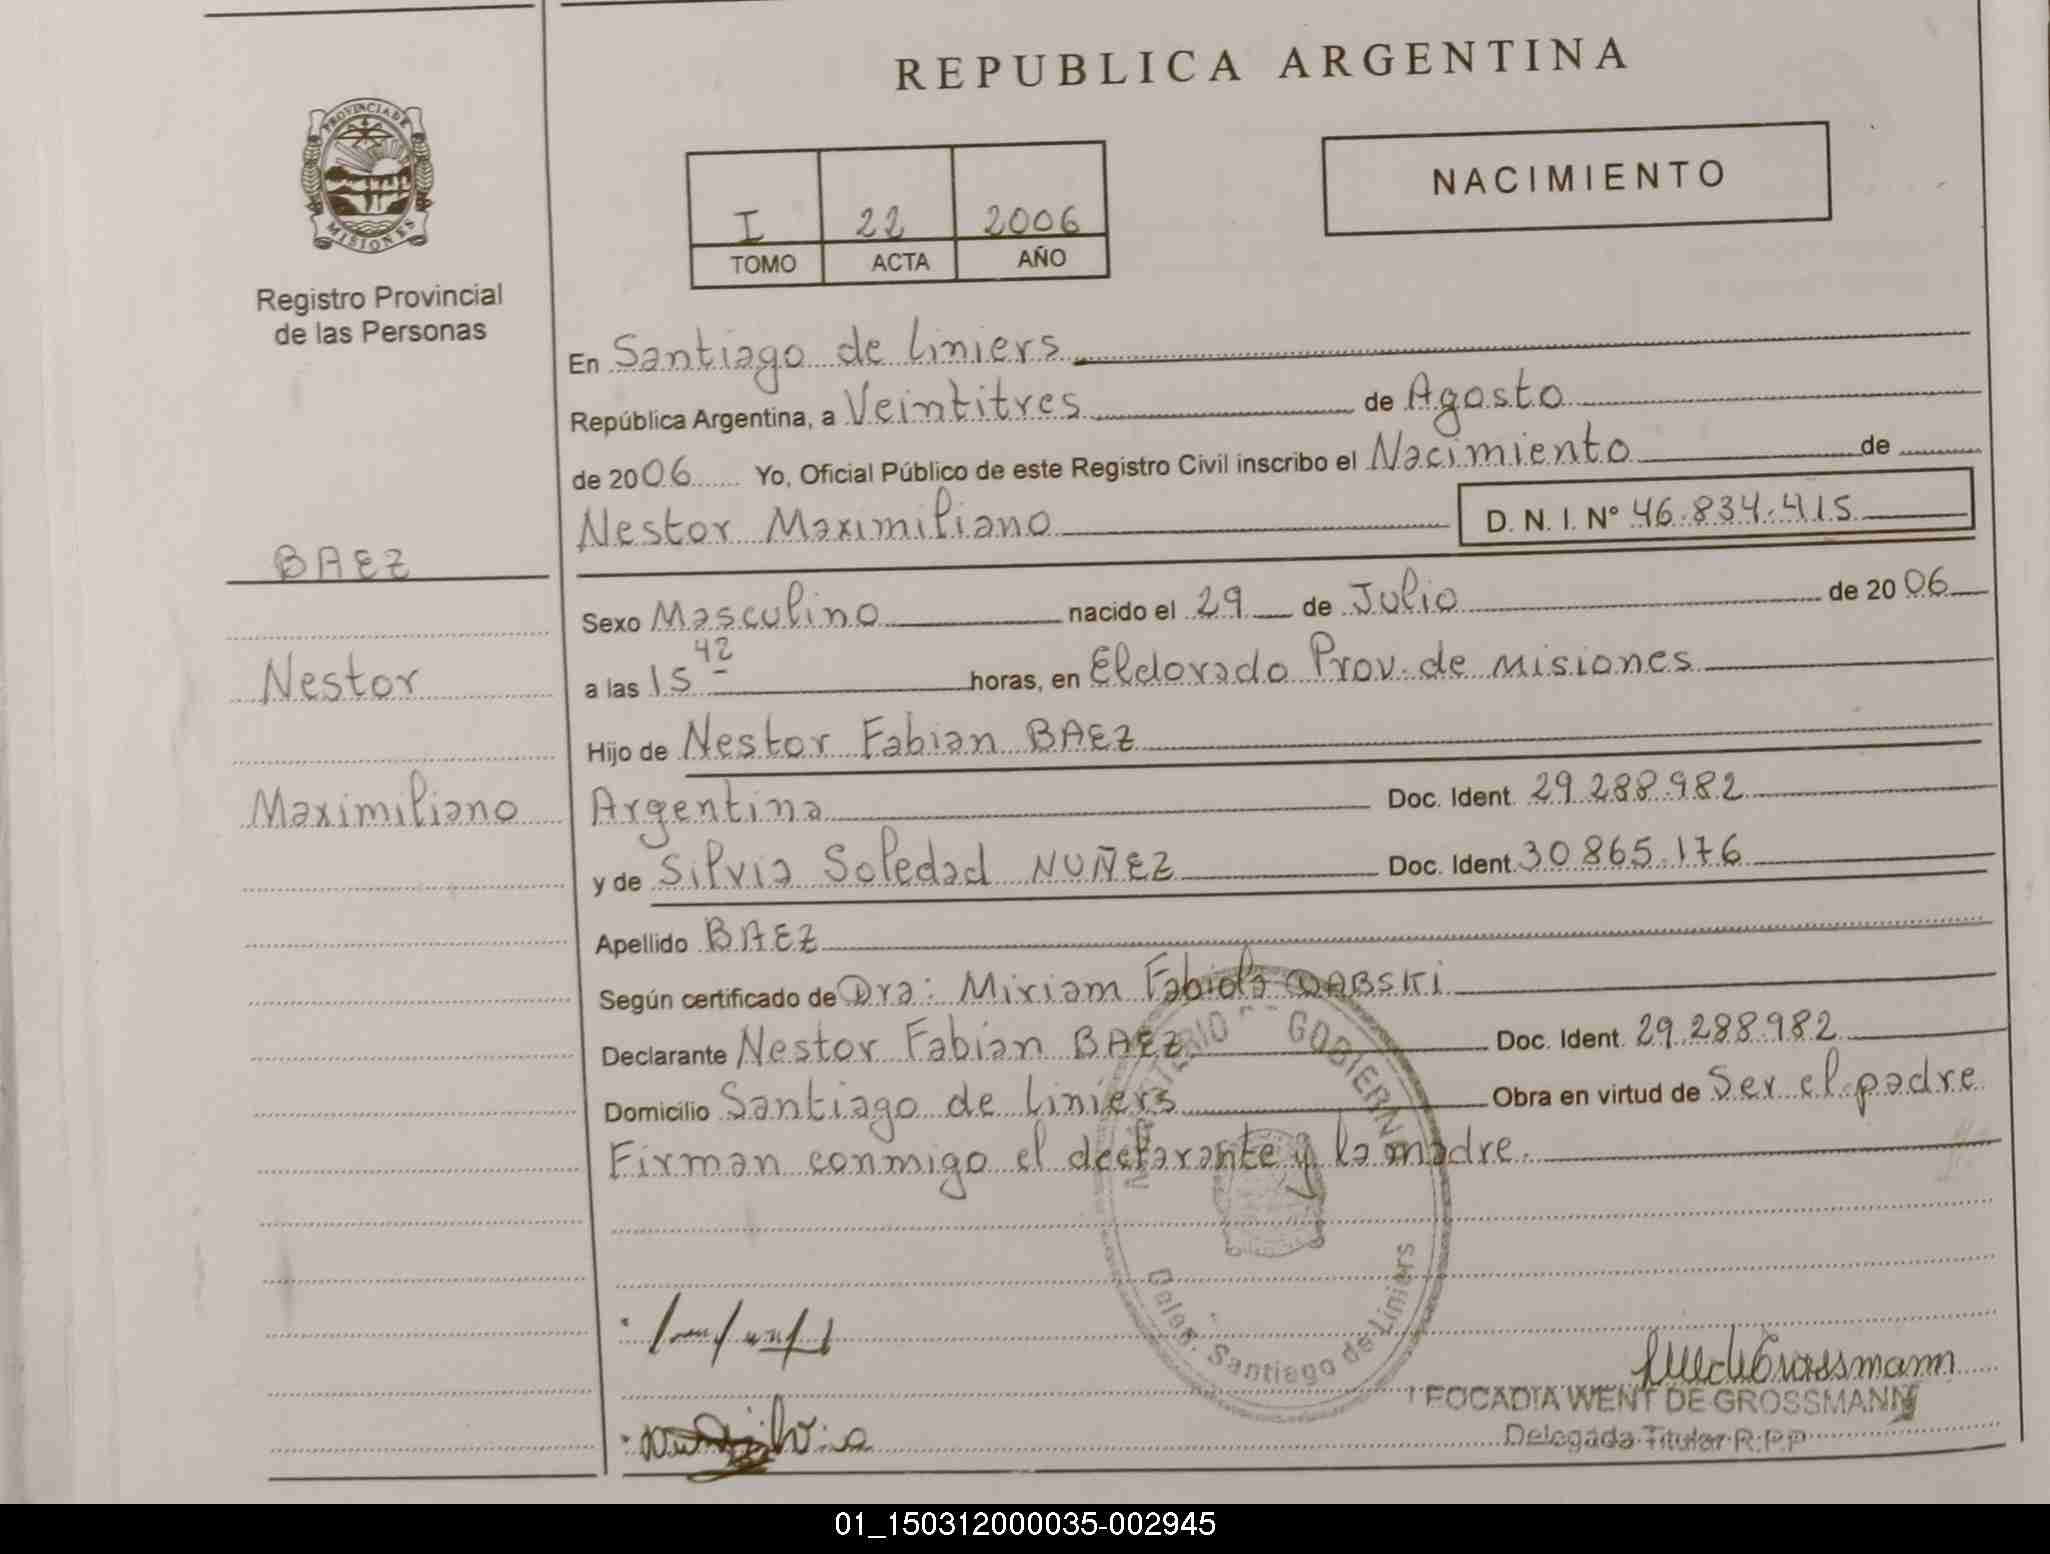 REPUBLICA ARGENTINA
PROVINCIA DE
MISIONES
Registro Provincial
de las Personas
I 22 2006
TOMO ACTA AÑO
NACIMIENTO
BAEZ
Nestor
Maximiliano
En Santiago de Liniers
República Argentina, a Veintitres de Agosto
de 2006 Yo, Oficial Público de este Registro Civil inscribo el Nacimiento de
Nestor Maximiliano D. N. I. Nº 46.834.415
Sexo Masculino nacido el 29 de Julio de 2006
a las 15 42 horas, en Eldorado Prov. de Misiones
Hijo de Nestor Fabian BAEZ
Argentina Doc. Ident. 29.288.982
y de Silvia Soledad NUÑEZ Doc. Ident. 30.865.176
Apellido BAEZ
Según certificado de Dra: Miriam Fabiola DABSKI
Declarante Nestor Fabian BAEZ Doc. Ident. 29.288.982
Domicilio Santiago de Liniers Obra en virtud de Ser el padre
Firman conmigo el declarante y la madre.
GOBIERN
Deleg. Santiago de Liniers
de Grossmann
FOCADIA WENT DE GROSSMANN
Delegada Titular R.P.P
01_150312000035-002945